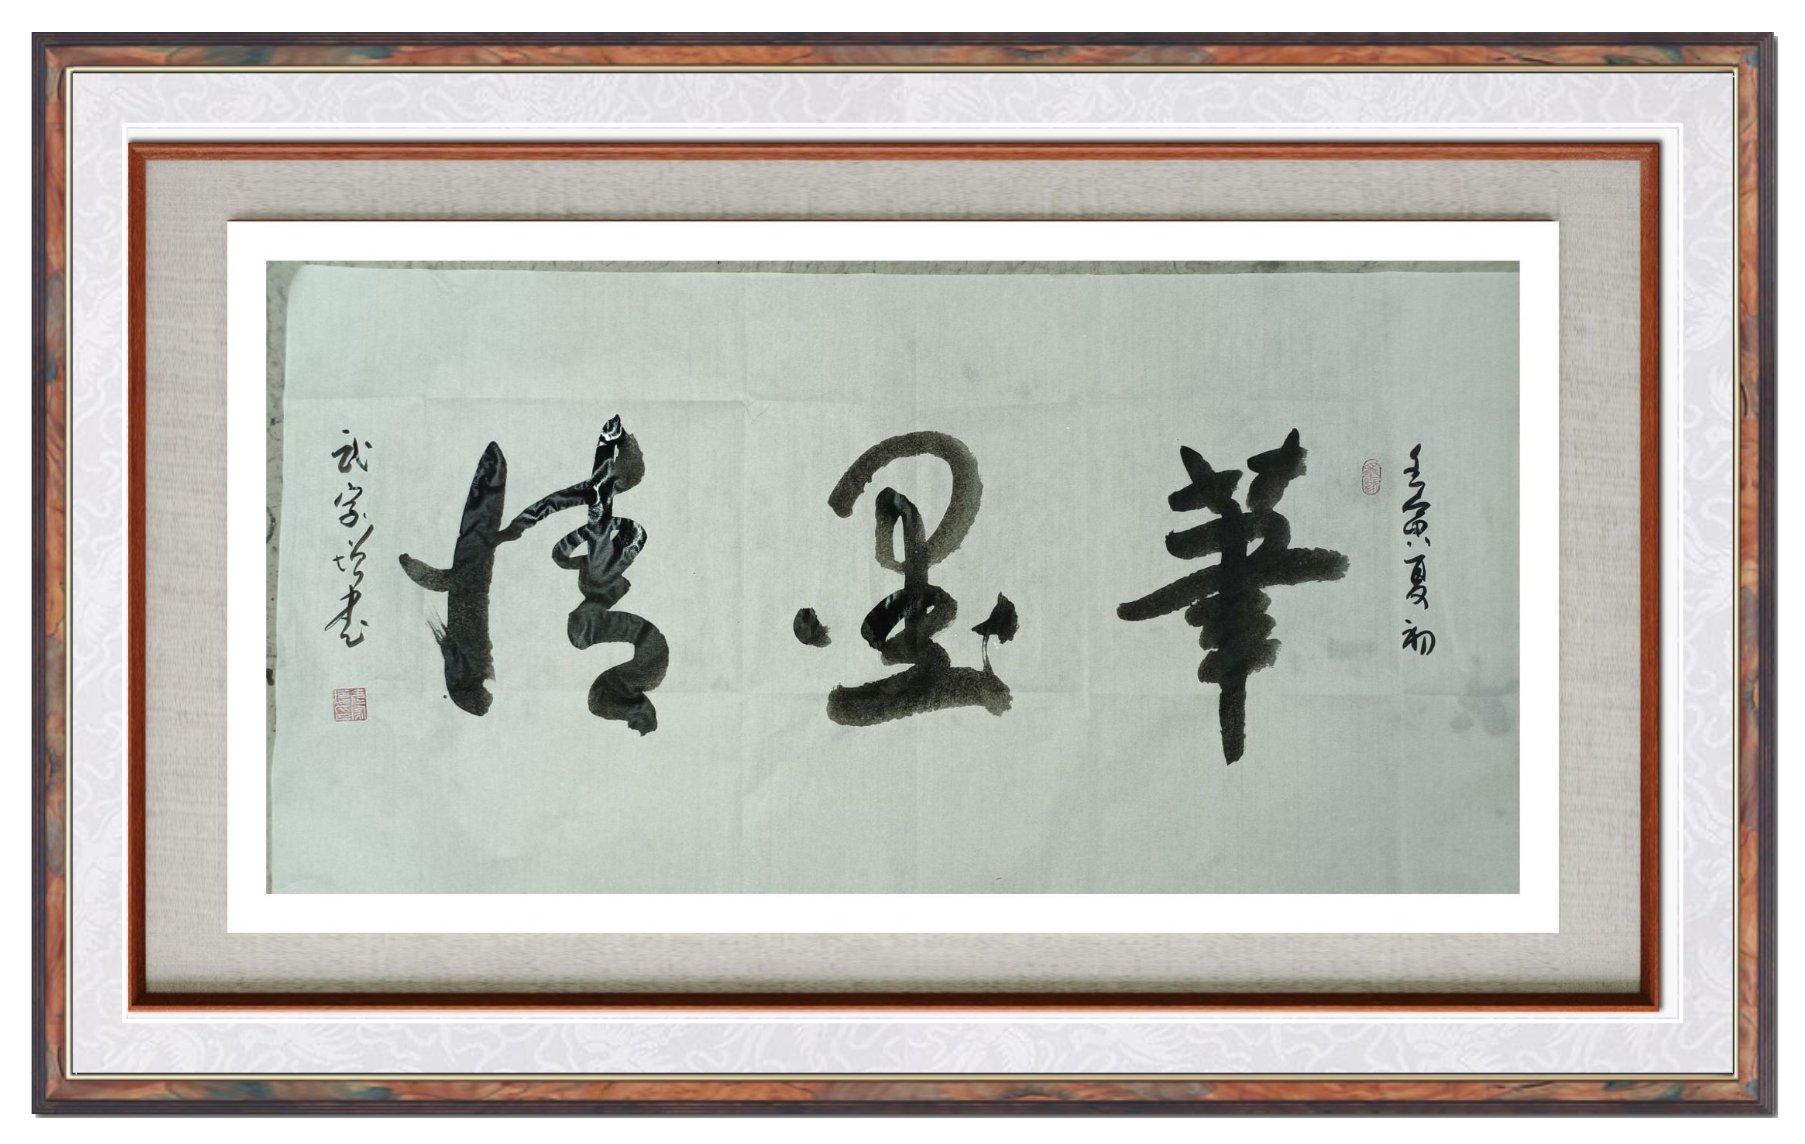 壬寅夏初
筆墨情
武宗增書